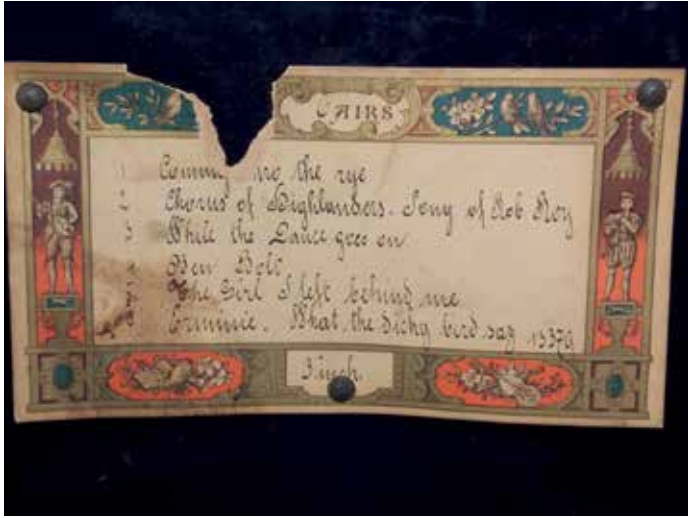 AIRS
1 Coming thro the rye
2 Chorus of Highlanders. Song of Rob Roy
3 While the Dance goes on
4 Ben Bolt
5 The Girl I left behind me
6 Erminie. What the Dicky bird say 13376